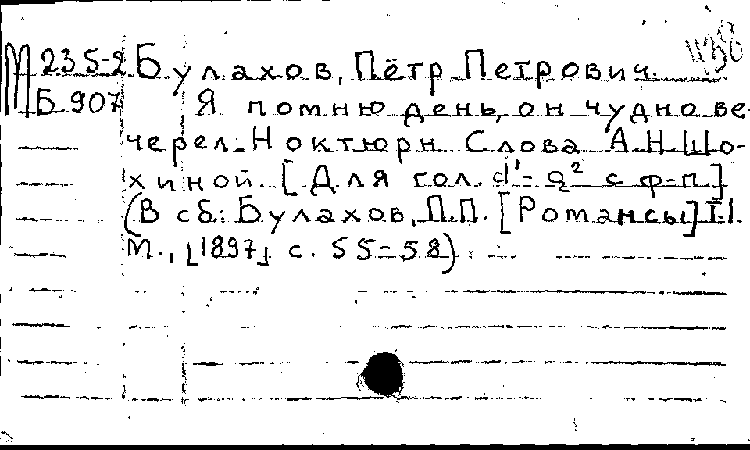 М 235-2 Булахов, Пётр Петрович.
Б 907 Я помню день, он чудно ве-
черел. Ноктюрн. Слова А.Н.Шо-
хиной. [Для гол. d¹- g² с ф-п.]
(В сб.: Булахов, П.П. [Романсы] Т.I.
М., [1897] с. 55-58).